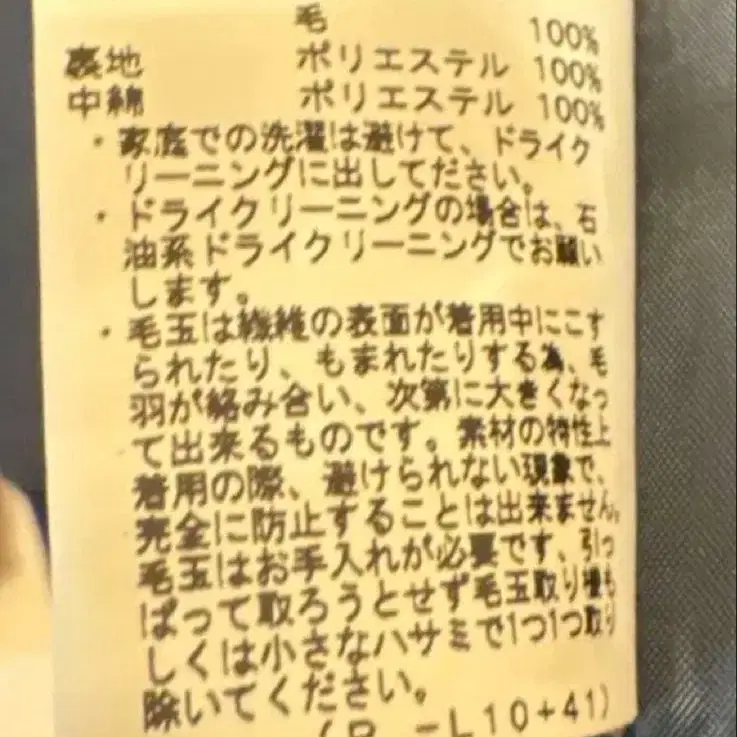 毛 100%
裏地 ポリエステル 100%
中綿 ポリエステル 100%
・家庭での洗濯は避けて、ドライク
リーニングに出してださい。
・ドライクリーニングの場合は、石
油系ドライクリーニングでお願い
します。
・毛玉は繊維の表面が着用中にこす
られたり、もまれたりする為、毛
羽が絡み合い、次第に大きくなっ
て出来るものです。素材の特性上
着用の際、避けられない現象で、
完全に防止することは出来ません。
毛玉はお手入れが必要です、引っ
ぱって取ろうとせず毛玉取り機も
しくは小さなハサミで1つ1つ取り
除いてください。
L10+41)